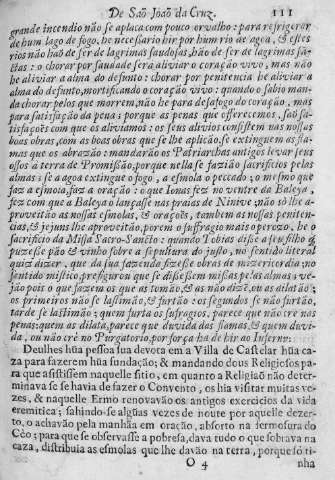 De Saõ Joaõ da Cruz. 111
grande incendio não se aplaca com pouco orvalho: para refrigerar
de hum lago de fogo, he necessario hir por hum rio de agoa, & estes
rios não haõ de ser de lagrimas saudosas, hão de ser de lagrimas
o chorar por saudade sera aliviar o coração vivo, mas não
he aliviar a alma do defunto: chorar por penitencia he aliviar a
alma do defunto, mortificando o coração vivo: quando o sabio man-
da chorar pelos que morrem, não he para desafogo do coração, mas
para satisfação da pena; porque as penas que offerecemos, saõ sa-
tisfaçoẽs com que os aliviamos: os seus alivios consistem nas nossas
boas obras, com as boas obras que se lhe aplicão, se extinguem as fla-
mas que os abrazão: mandarão os Patriarchas antigos levar seus
ossos à terra de Promissão, porque nella se fazião sacrificios pelas
almas: se a agoa extingue o fogo, a esmola o peccado; o mesmo que
faz a esmola, faz a oração: o que Ionas fez no ventre da Baleya,
fez com que a Baleya o lançasse nas praias de Ninive; não só lhe a-
proveitão as nossas esmolas, & oraçoẽs, tambem as nossas peniten-
cias, & jejuns lhe aproveitão, porem o suffragio mais poderoso, he o
sacrificio da Missa Sacro-Sancto: quando Tobias disse a seu filho q̃
puzesse pão & vinho sobre a sepultura do justo, no sentido literal
quiz dizer, que da sua fazenda fizesse obras de misericordia; no
sentido mistico, prefigurou que se dissessem missas pelas almas: ve-
jão pois o que fazem os que as tomão, & as não dizẽ, ou as dilatão;
os primeiros não se lastimão, & furtão: os segundos se não furtão,
tarde se lastimão; quem furta os sufragios, parece que não crè nas
penas: quem as dilata, parece que duvida das flamas, & quem duvi-
da, ou não crè no Purgatorio, por força ha de hir ao Inferno.
Deulhes hũa pessoa sua devota em a Villa de Castelar hũa ca-
za para fazerem hũa fundação; & mandando dous Religiosos pa-
ra que asistissem naquelle sitio, em quanto a Religiaõ não deter-
minava se se havia de fazer o Convento, os hia visitar muitas ve-
zes, & naquelle Ermo renovavão os antigos exercicios da vida
eremitica; sahindo-se algũas vezes de noute por aquelle dezer-
to, o achavão pela manhãa em oração, absorto na fermosura do
Ceo; para que se observasse a pobresa, dava tudo o que sobrava na
caza, distribuia as esmolas que lhe davão na terra, porque só ti-
O 4 nha